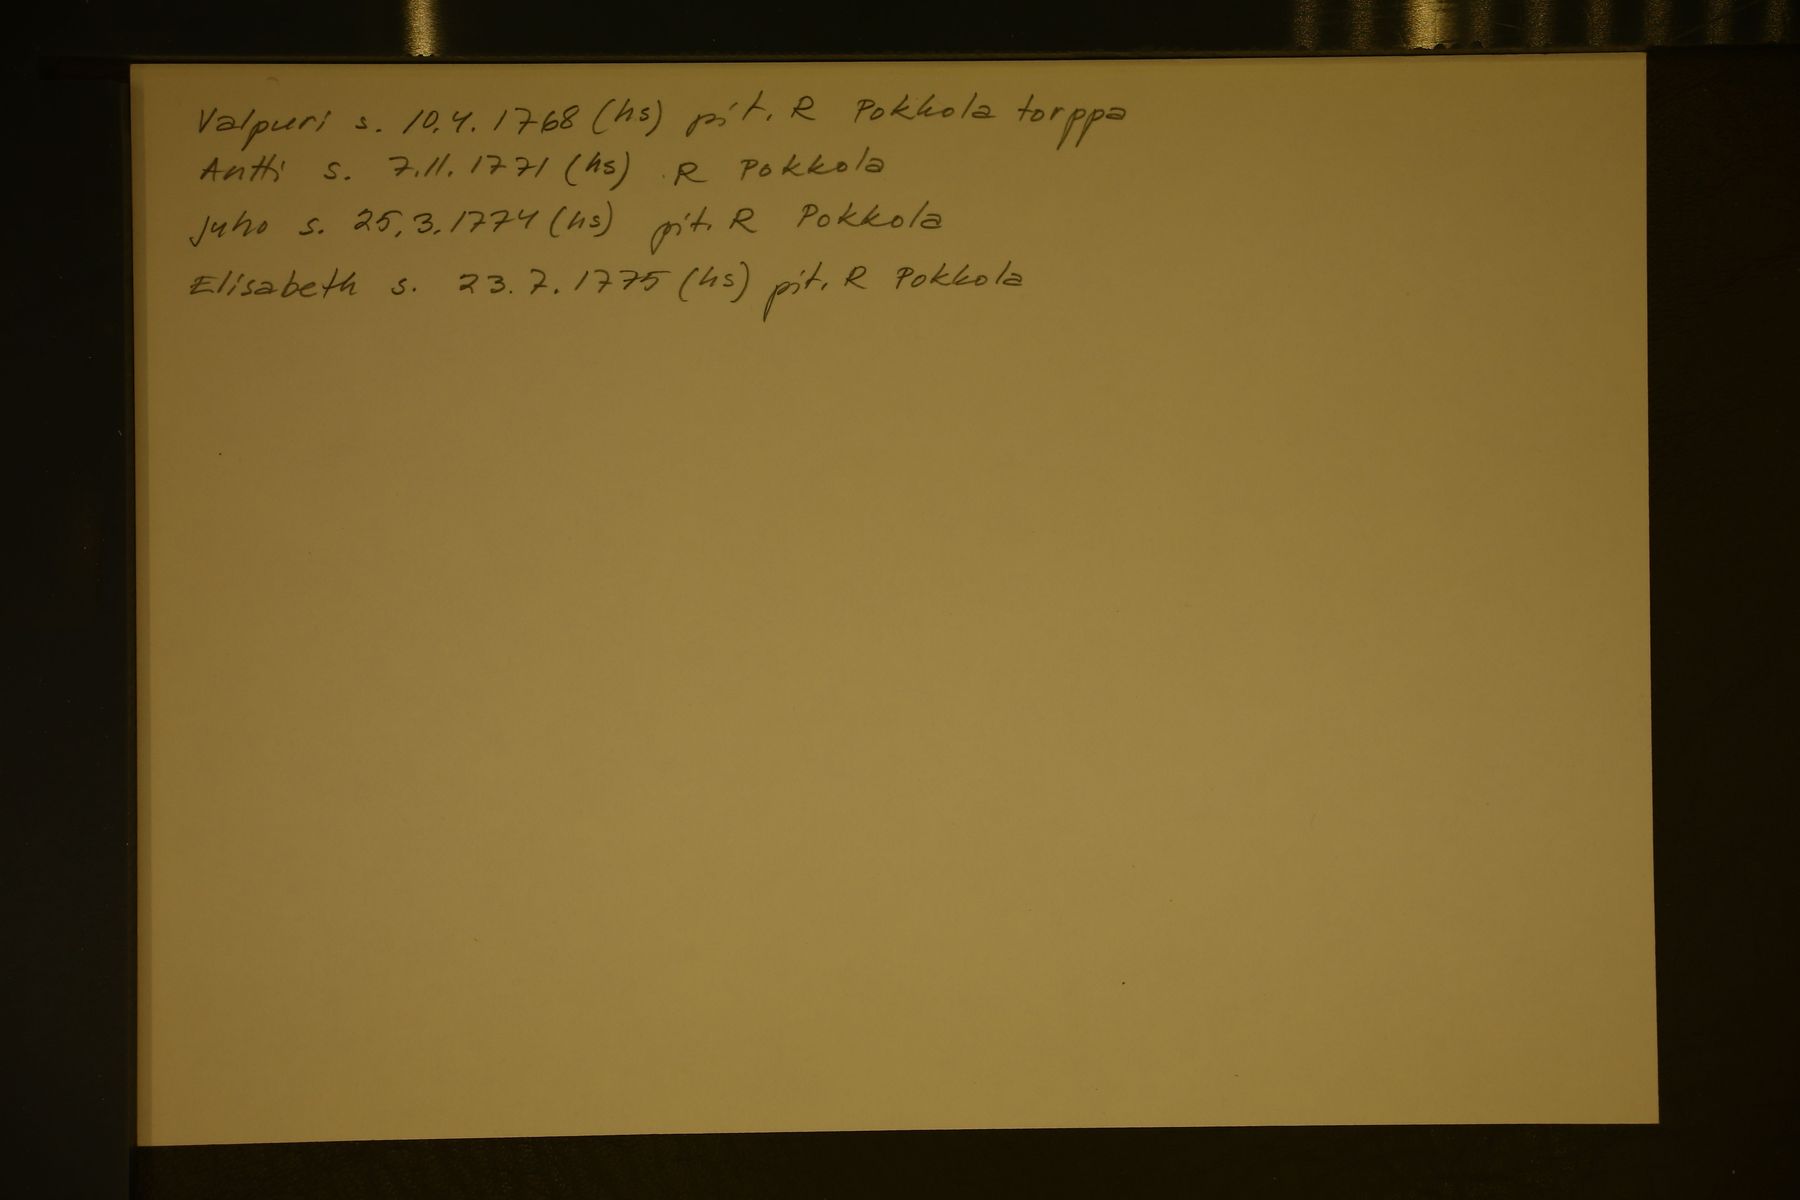 Valpuri s. 10.4.1768 (hs) pit. R Pokkola torppa
Antti s. 7.11.1771 (hs) R Pokkola
Juho s. 25.3.1774 (hs) pit. R Pokkola
Elisabeth s. 23.7.1775 (hs) pit. R Pokkola